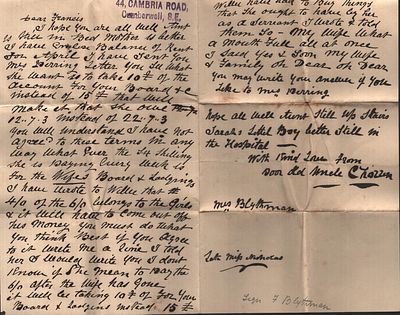 44, CAMBRIA ROAD,
Camberwell, S.E.
Dear Francis
I hope you are all well that
is this Best Mother is better
I have Balance of Rent
for April I have Sent you
Mrs Berring letter you See what
She want is to take 10/- of the
account for your Board &c
instead of 15/- that will
make it that She owe
12..7..3 instead of 22/7/3
You Will understand I have not
agreed to these terms in any
way What Ever the 4 Shilling
she is Paying Every Week is
for the Wifes Board & Lodgings
I have Wrote to Willie that the
4/0 of the 6/0 belongs to the Girls
& it Will have to Come out off
his Money You must do What
You think Best if you agree
to it Write me a line I told
her I would Write You I dont
Know if She Mean to Pay the
6/0 after the Wife has gone
it will be taking 10/- of for Your
Board & Lodgins instead 15/-
Willie have had to Buy things
that she ought to have as far
as a Servant I wrote & told
them So - My Wife What
a Mouth full all at once
I Say You & I on My Wife
& Family Oh Dear Oh Dear
You may Write your answer if you
Like to Mrs Berring
hope all Well Aunt Still up Stairs
Sarahs Little Boy better Still in
the Hospital
With Kind Love from
Poor Old Uncle
Mrs Blythman
Late Miss Nicholas
Sign F Blythman